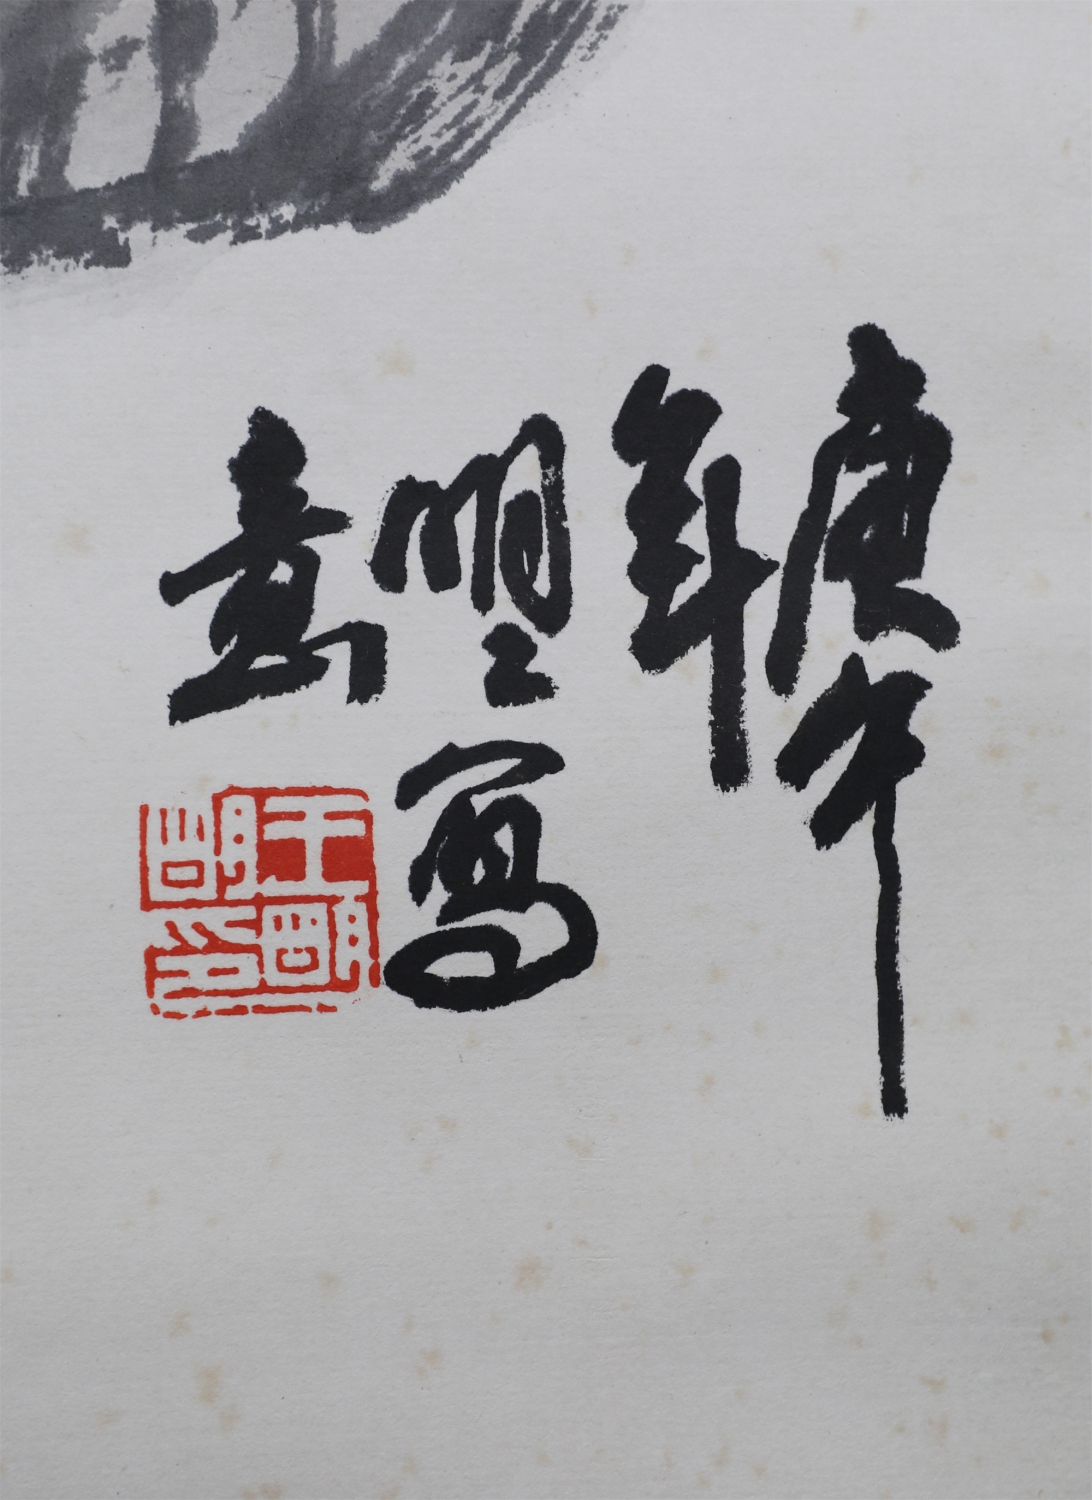 庚午
年
明々寫
意
王明
明印